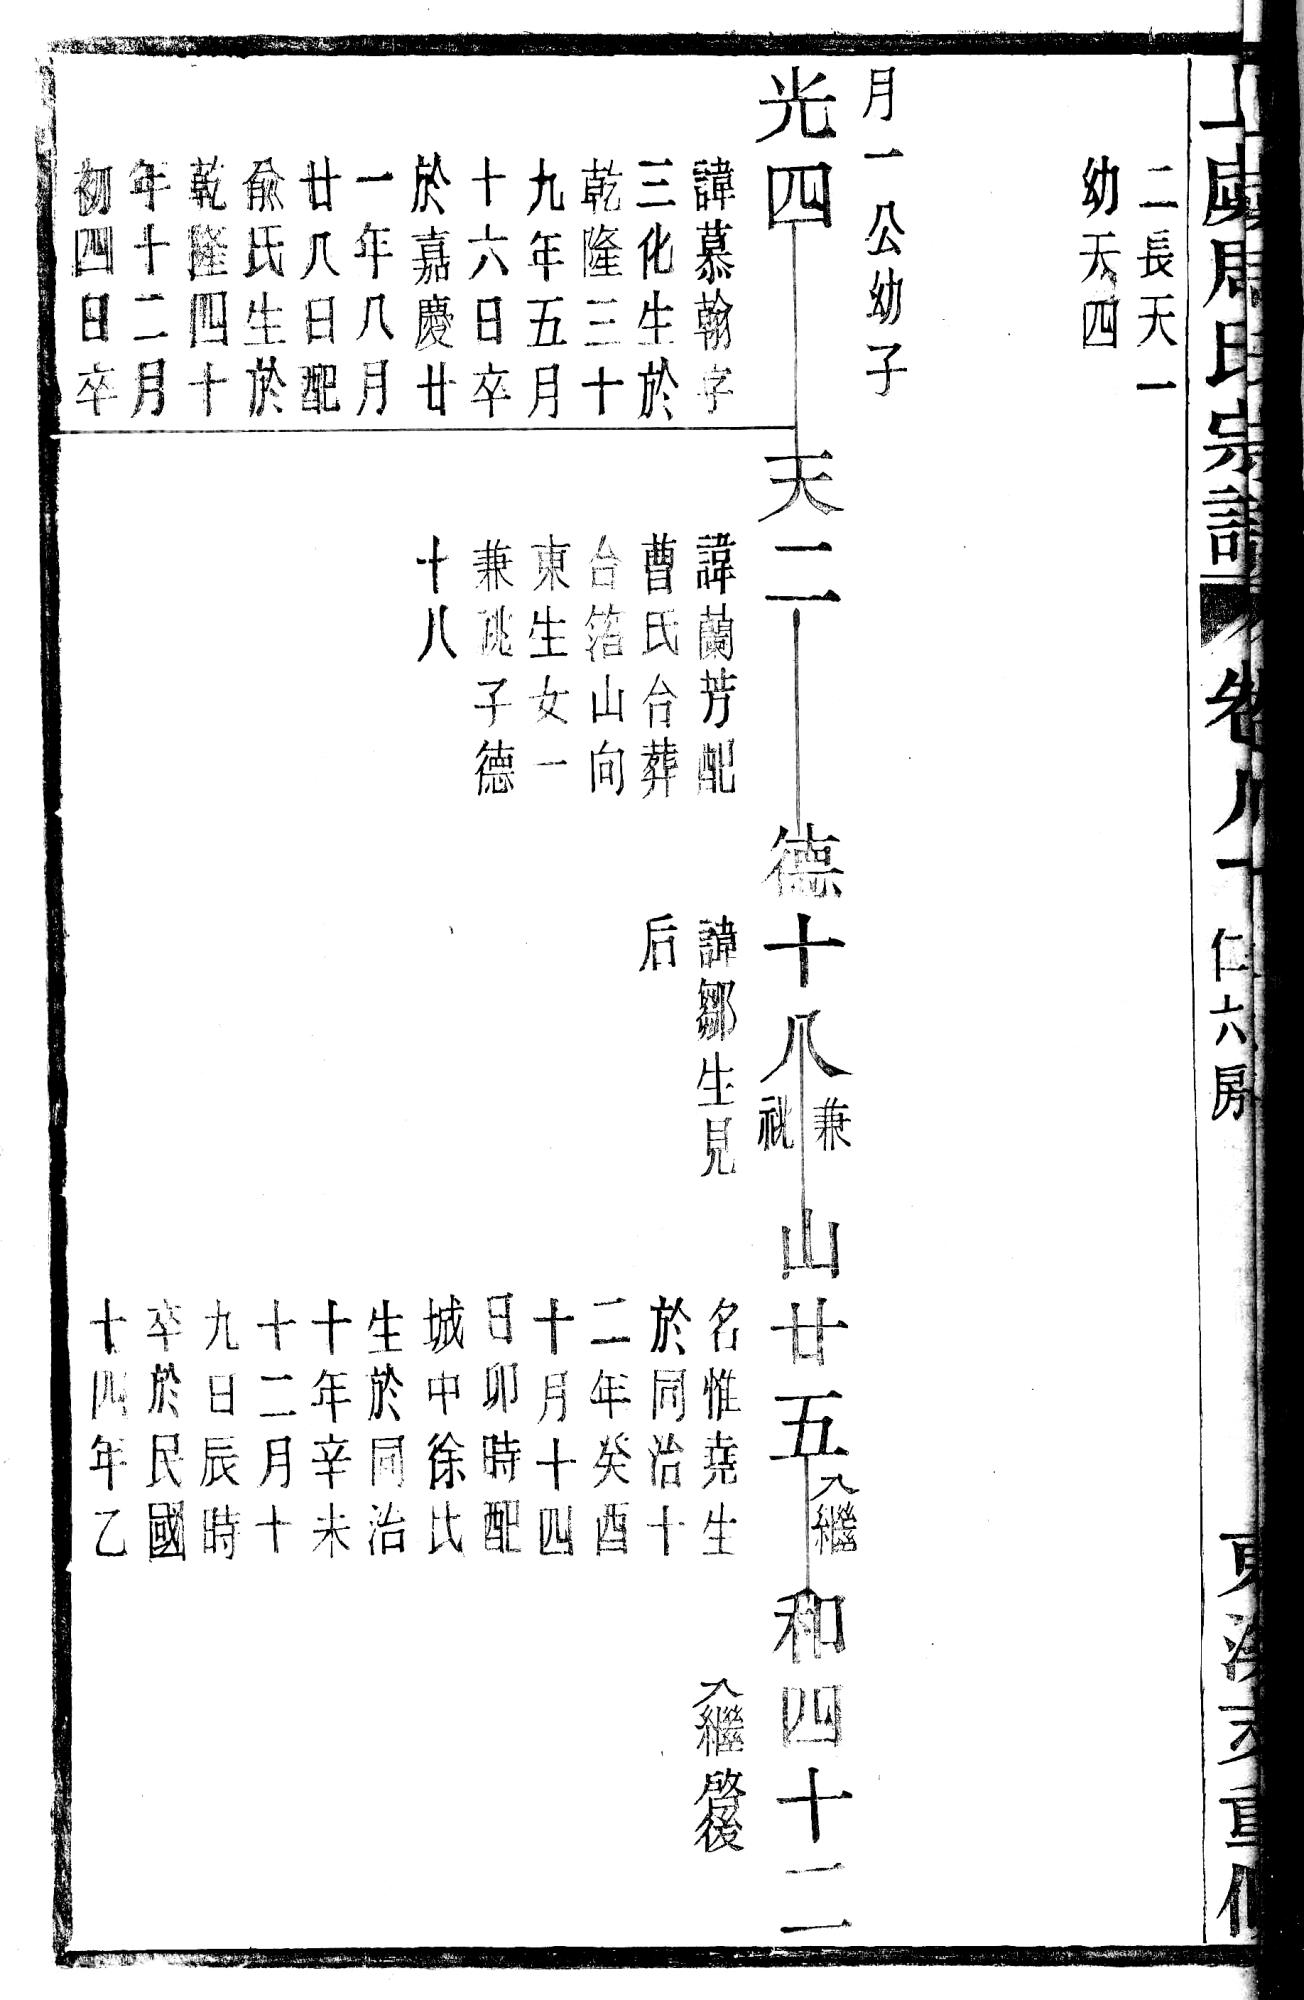 上虞周氏宗譜
卷八十
仁六房
東溪支重修
二長天一
幼天四
月一公幼子
光四
諱慕翰字
三化生於
乾隆三十
九年五月
十六日卒
於嘉慶廿
一年八月
廿八日配
俞氏生於
乾隆四十
年十二月
初四日卒
天二
諱蘭芳配
曹氏合葬
台箔山向
東生女一
兼祧子德
十八
德十八
兼祧
諱鄒生見
后
山廿五
入繼
名惟堯生
於同治十
二年癸酉
十月十四
日卯時配
城中徐氏
生於同治
十年辛未
十二月十
九日辰時
卒於民國
十四年乙
和四十二
入繼啓後